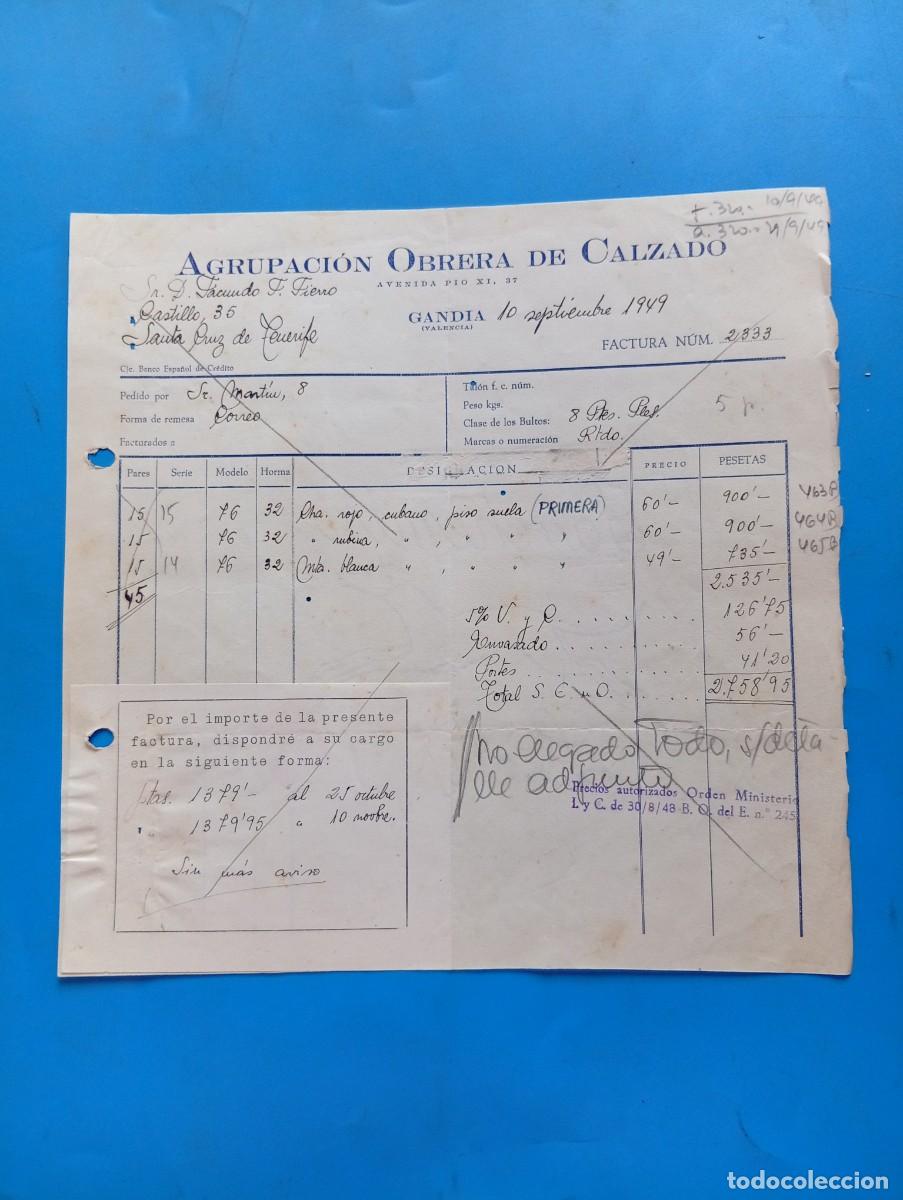 10/9/49
a. 320.- 21/9/49
AGRUPACIÓN OBRERA DE CALZADO
AVENIDA PIO XI, 37
Sr. D. Facundo F. Fierro
Castillo, 35
Santa Cruz de Tenerife
GANDIA 10 septiembre 1949
(VALENCIA)
FACTURA NÚM. 2333
Cte. Banco Español de Crédito
Pedido por Sr. Martín, 8
Forma de remesa Correo
Facturados a
Talón f. c. núm.
Peso kgs.
Clase de los Bultos: 8 Ptes. Ples. 5 p.
Marcas o numeración Rtdo.
Pares Serie Modelo Horma DESIGNACION PRECIO PESETAS
15 15 76 32 Cha. rojo, cubano, piso suela (PRIMERA) 60'- 900'- 463B
15 76 32 " rubira, " " " 60'- 900'- 464B
15 14 76 32 Mta. blanca " , " " " 49'- 735'- 465B
45 2.535'-
5% V. y C. . . . . . . . . . 126'75
Envasado . . . . . . . . . 56'-
Portes . . . . . . . . . 41'20
Total S. E. u O. . . . . 2.758'95
Por el importe de la presente
factura, dispondré a su cargo
en la siguiente forma:
Ptas. 1379'- al 25 octubre
" 1379'95 " 10 novbre.
Sin más aviso
No llegado Todo, s/deta-
lle adjunto
Precios autorizados Orden Ministerio
I. y C. de 30/8/48 B. O. del E. n.º 245
todocoleccion